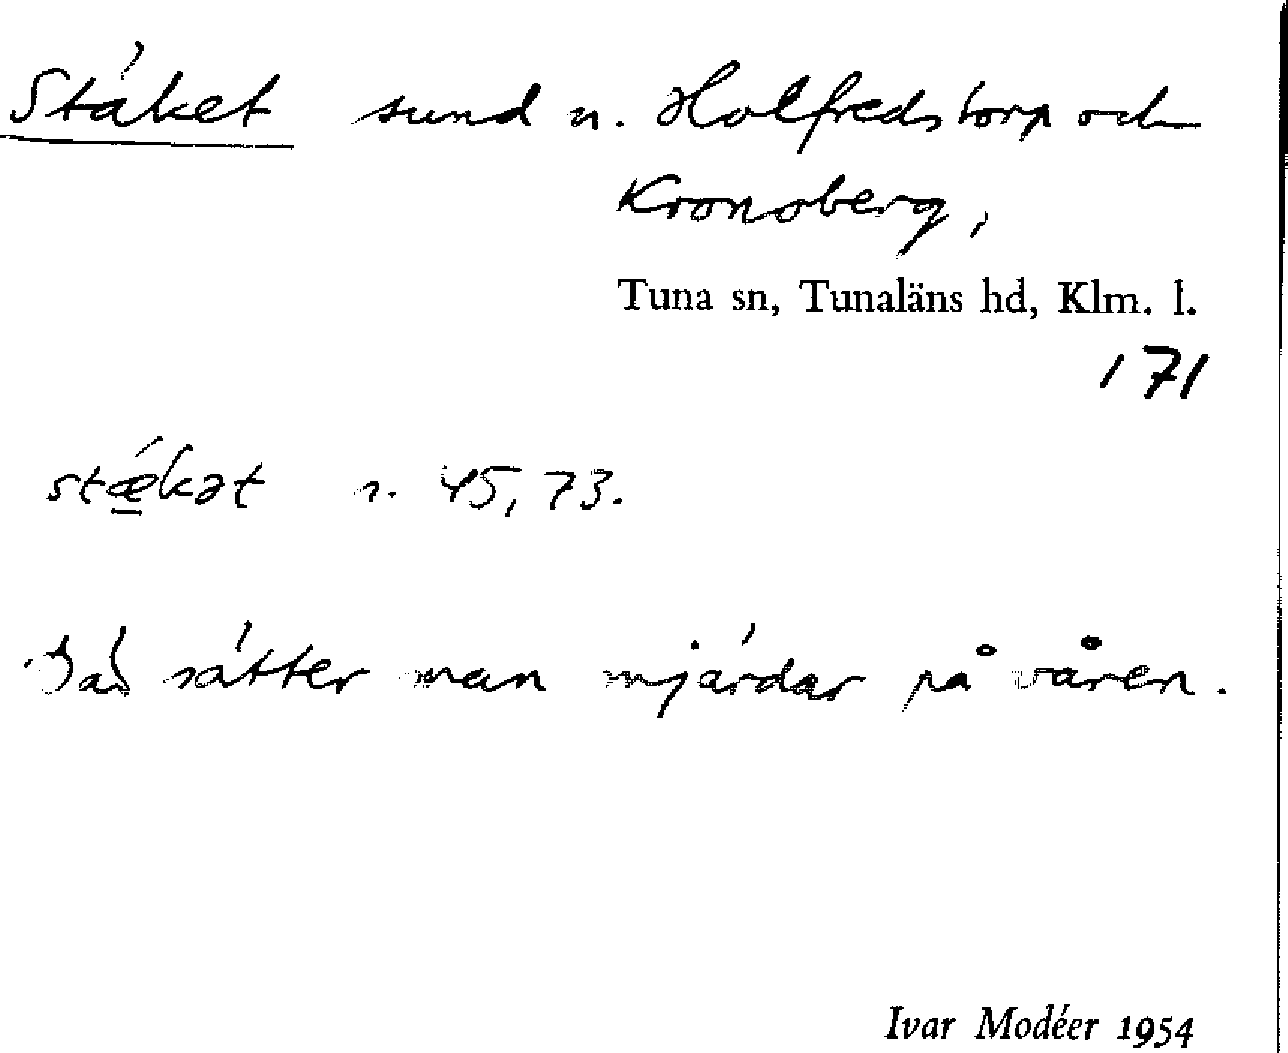 Stäket sund n. Holfredstorp och
Kronoberg,
Tuna sn, Tunaläns hd, Klm. l.
171
stǽkət n. 45, 73.
sätter man mjärdar på våren.
Ivar Modéer 1954